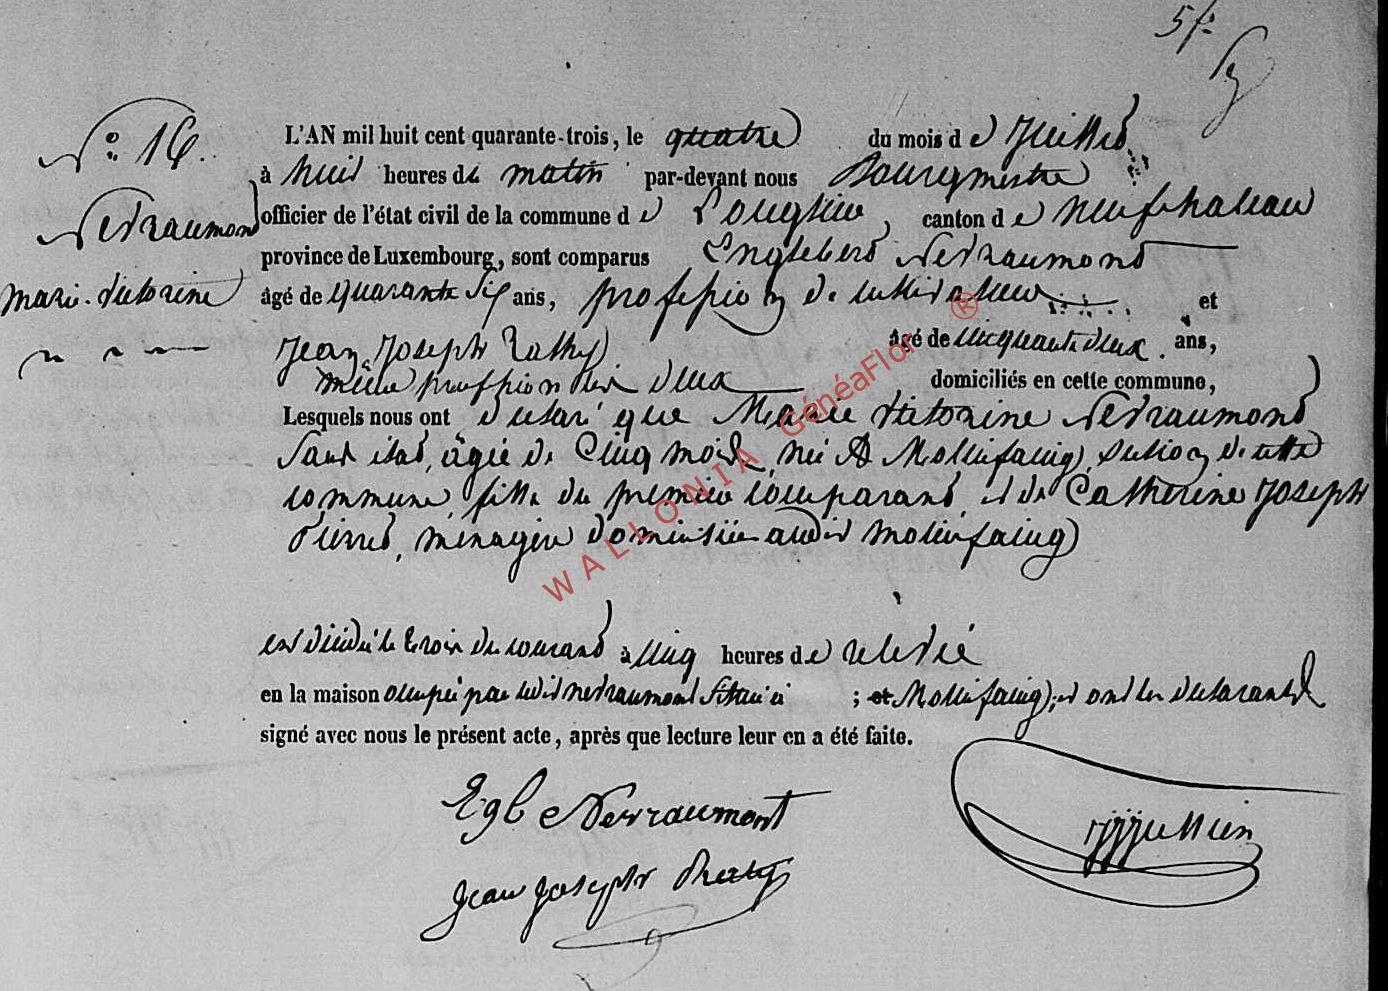 5f:
N° 16.
Nerraumont
Marie-Victorine
L'AN mil huit cent quarante-trois, le quatre du mois de Juillet
à huit heures du matin par-devant nous Bourgmestre
officier de l'état civil de la commune de Longlier, canton de Neufchateau
province de Luxembourg, sont comparus Englebert Nerraumont
âgé de quarante six ans, profession de cultivateur et
Jean Joseph Rathy âgé de cinquante deux ans,
même profession tous deux domiciliés en cette commune,
Lesquels nous ont déclaré que Marie Victorine Nerraumont
sans état, âgée de Cinq mois, née à Molinfaing, section de cette
commune, fille du premier comparant, et de Catherine Joseph
Pierret, ménagère domiciliée audit Molinfaing
est décédée le trois du courant à cinq heures de relevée
en la maison occupée par ledit Nerraumont située à ; et Molinfaing, et ont les déclarants
signé avec nous le présent acte, après que lecture leur en a été faite.
Egb Nerraumont
Jean Joseph Rathy
WALLONIA GénéaFlor ®